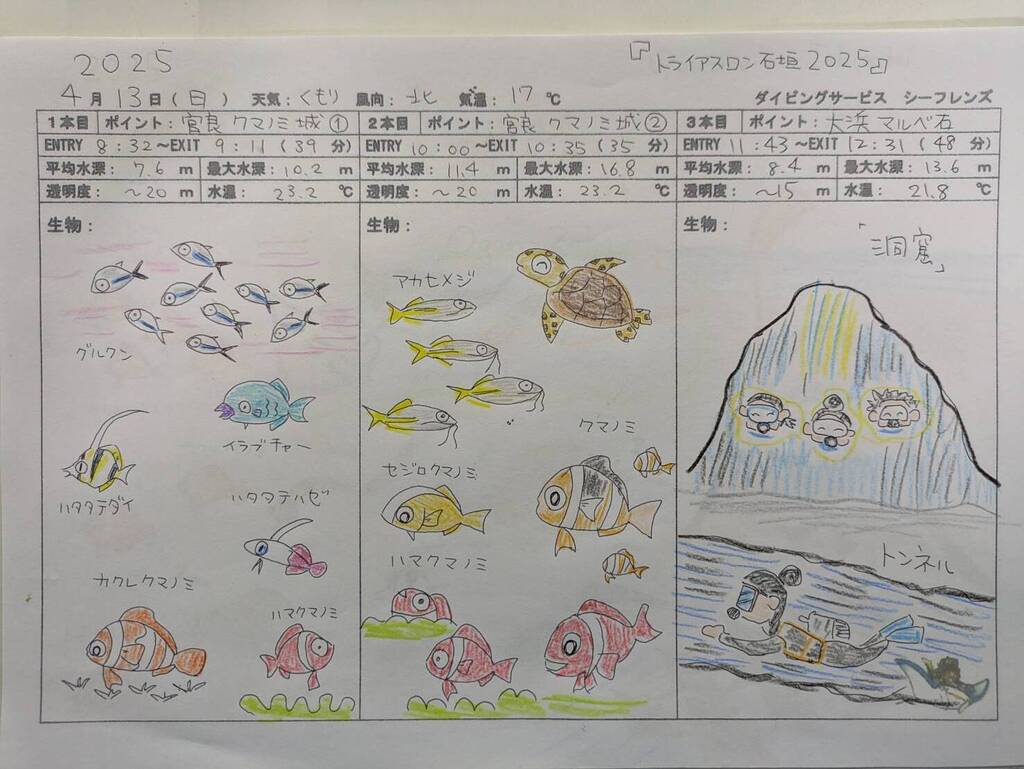 2025
『トライアスロン石垣2025』
4月13日(日) 天気:くもり 風向:北 気温:17℃ ダイビングサービス シーフレンズ
1本目 ポイント:宮良 クマノミ城①
ENTRY 8:32~EXIT 9:11(39分)
平均水深:7.6m 最大水深:10.2m
透明度:~20m 水温:23.2℃
生物:
グルクン
イラブチャー
ハタタテダイ
ハタタテハゼ
カクレクマノミ
ハマクマノミ
2本目 ポイント:宮良 クマノミ城②
ENTRY 10:00~EXIT 10:35(35分)
平均水深:11.4m 最大水深:16.8m
透明度:~20m 水温:23.2℃
生物:
アカヒメジ
クマノミ
セジロクマノミ
ハマクマノミ
3本目 ポイント:大浜 マルベ石
ENTRY 11:43~EXIT 12:31(48分)
平均水深:8.4m 最大水深:13.6m
透明度:~15m 水温:21.8℃
生物:
「洞窟」
トンネル